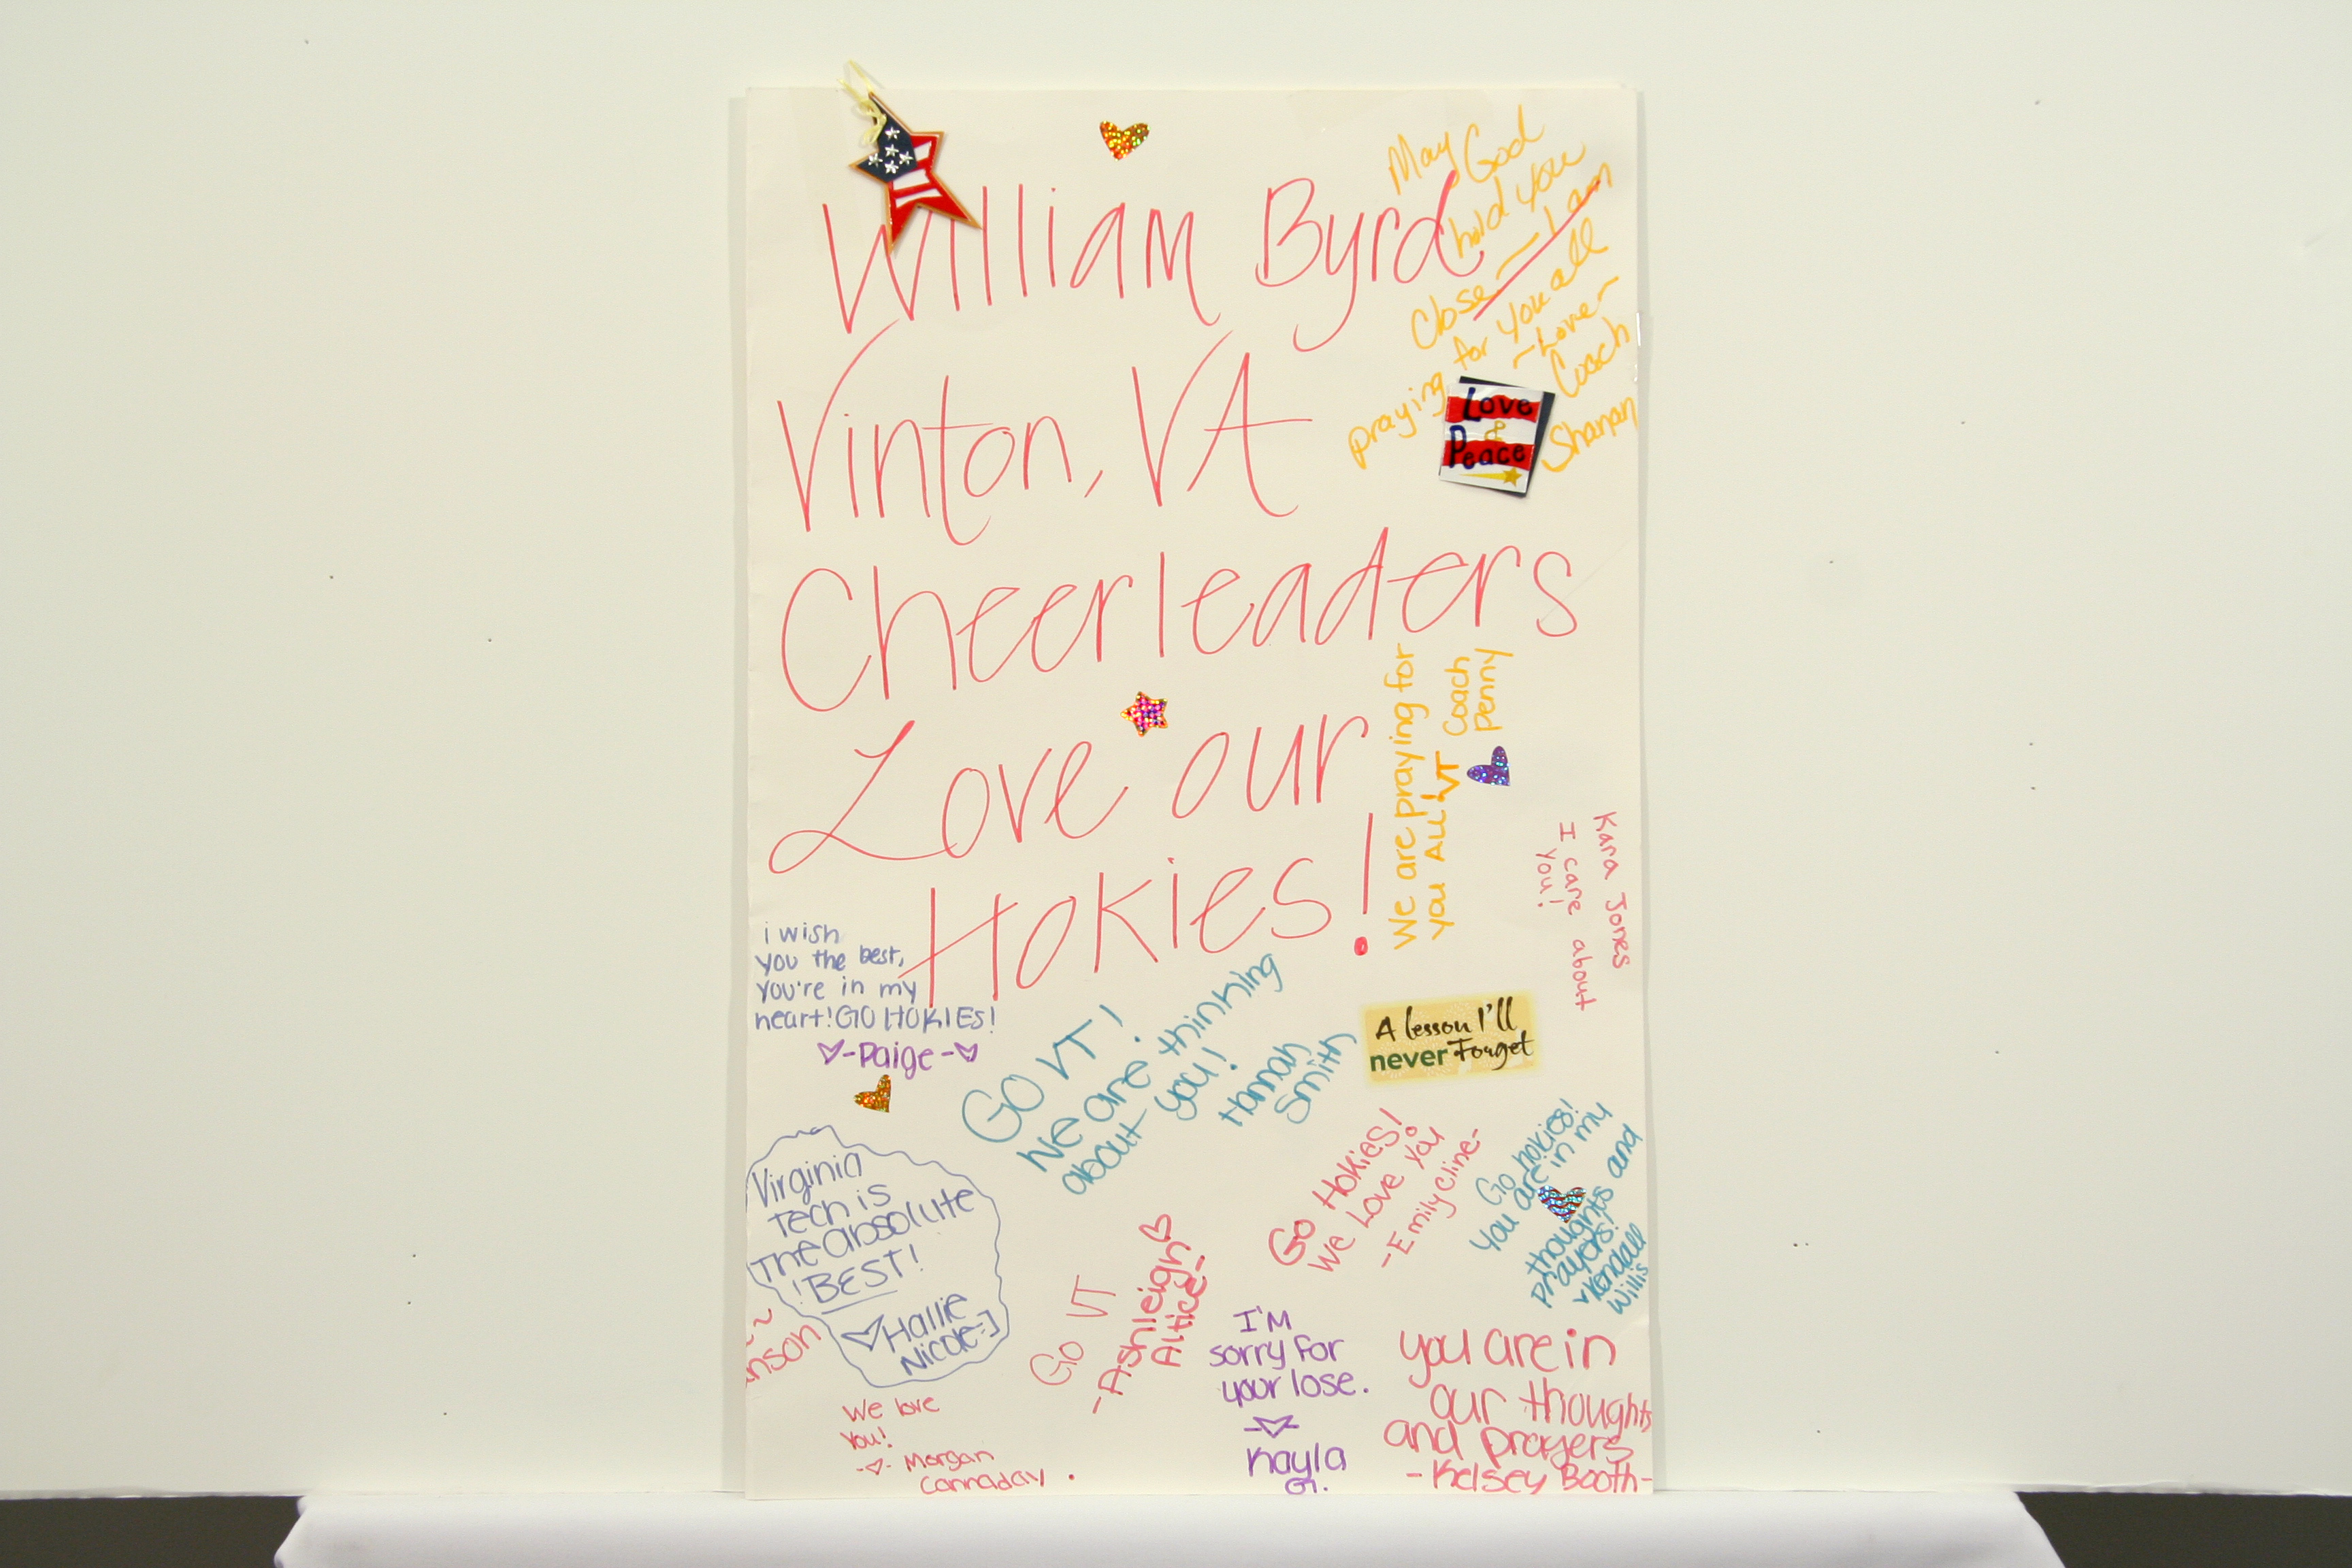 William Byrd
Vinton, VA
Cheerleaders
Love our
Hokies!
May God
hold you
close — I am
praying for you all
- Love -
Coach
Shanan
Love
&
Peace
We are praying for
you All! VT
Coach
Penny
Kara Jones
I care about
you!
i wish
you the best,
you're in my
heart! GO HOKIES!
-Paige-
GO VT!
We are thinking
about you!
Hannah
Smith
A lesson I'll
never Forget
Virginia
Tech is
The absolute
!BEST!
Hallie
Nicole =]
Go Hokies!
We Love You
-Emily Cline-
Go Hokies!
You are in my
thoughts and
prayers!
Kendall
Willis
nson
GO VT
-Ashleigh
Altice-
I'M
sorry for
your lose.
Kayla
G.
you are in
our thoughts
and prayers
-Kelsey Booth-
We love
You!
- Morgan
Cannaday